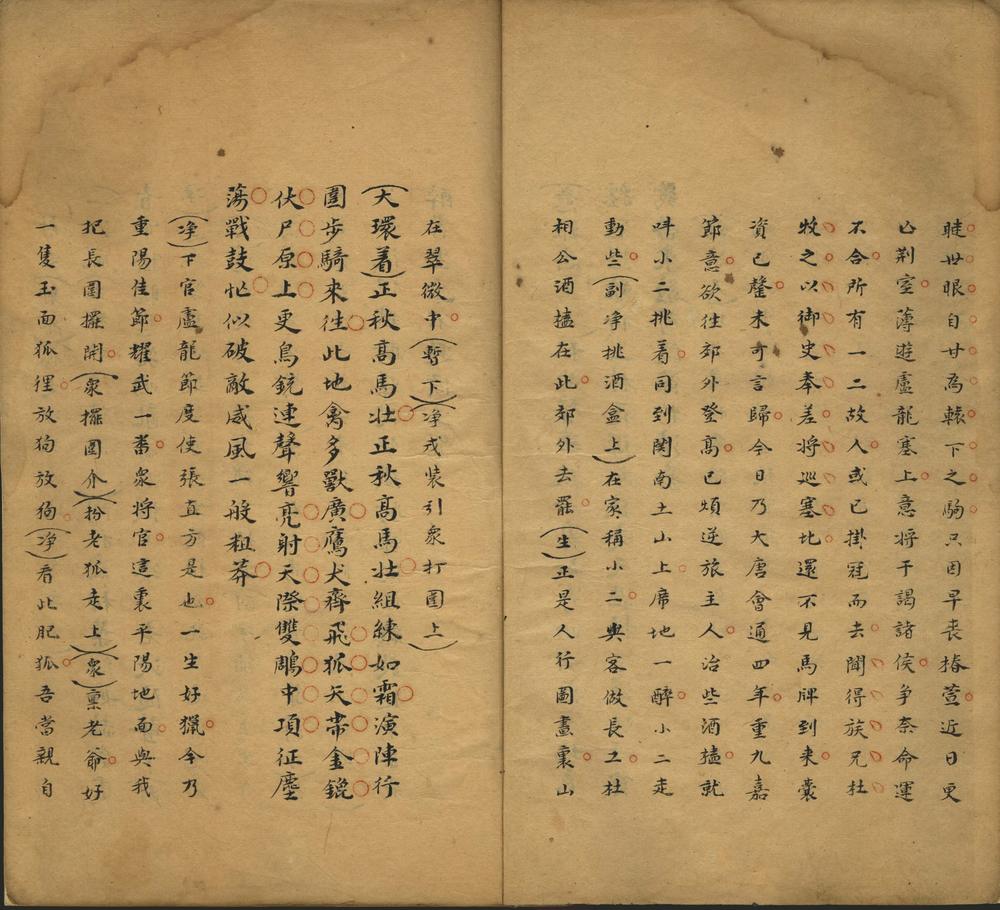 睫世眼自甘為轅下之駒只因早喪椿萱近日更
亡荆室薄遊盧龍塞上意將干謁諸侯争奈命運
不合所有一二故人或已掛冠而去聞得族兄杜
牧之以御史奉差將巡塞北還不見馬牌到来囊
資已罄未可言歸今日乃大唐會通四年重九嘉
節意欲往郊外登高已煩逆旅主人治些酒榼就
呌小二挑着同到関南土山上席地一醉小二走
動些(副净挑酒盒上)在家稱小二與客做長工杜
相公酒榼在此郊外去罷(生)正是人行圖畫裏山
在翠微中(暫下)(净戎装引衆打圍上)
(大環着)正秋高馬壯正秋高馬壯組練如霜演陣行
圍步騎來徃此地禽多獸廣鷹犬齊飛狐矢帶金鎞
伏尸原上更鳥銃連聲響亮射天際雙鵰中項征塵
蕩戰鼓忙似破敵威風一般粗莽
(净)下官盧龍節度使張直方是也一生好獵今乃
重陽佳節耀武一畨衆將官這裏平陽地面與我
把長圍擺開(衆擺圍介)(扮老狐走上)(衆)禀老爺好
一隻玉面狐狸放狗放狗(净)看此肥狐吾當親自